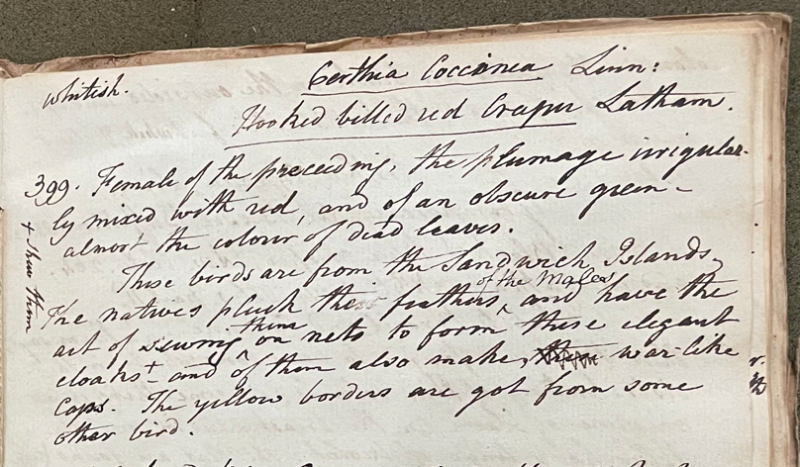 whitish.
Certhia Coccinea Linn:
Hooked billed red Creeper Latham.
399. Female of the preceeding, the plumage irrigular-
ly mixed with red, and of an obscure green -
almost the colour of dead leaves.
These birds are from the Sandwich Islands,
of the Males
The natives pluck the feathers ^ and have the
them
art of sewing ^ on nets to form these elegant
cloaks + and of them also make, war-like
Caps. The yellow borders are got from some
other bird.
+ shew them